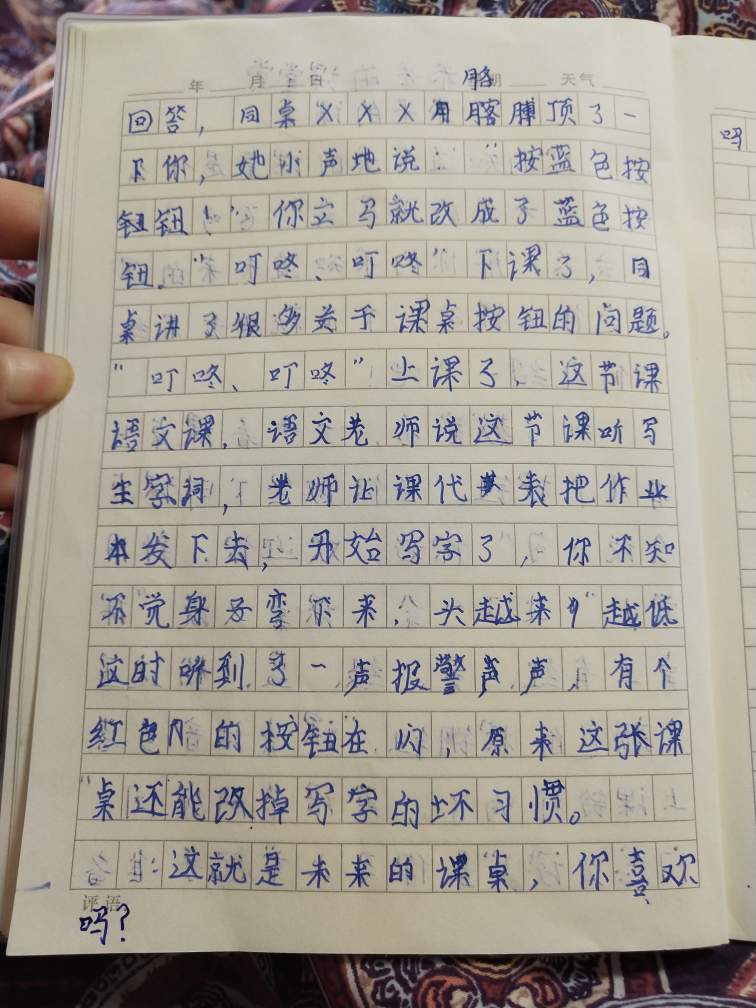 年 月 日 星期 天气
胳
回答，同桌XXX用胳膊顶了一
下你，她小声地说："按蓝色按
钮钮！"你立马就改成了蓝色按
钮。"叮咚、叮咚"下课了，同
桌讲了很多关于课桌按钮的问题。
"叮咚、叮咚"上课了，这节课
语文课，语文老师说这节课听写
生字词，老师让课代表把作业
本发下去，开始写字了，你不知
不觉身子弯下来，头越来越低
这时听到了一声报警声，有个
红色的按钮在闪，原来这张课
桌还能改掉写字的坏习惯。
这就是未来的课桌，你喜欢
评语
吗？
吗